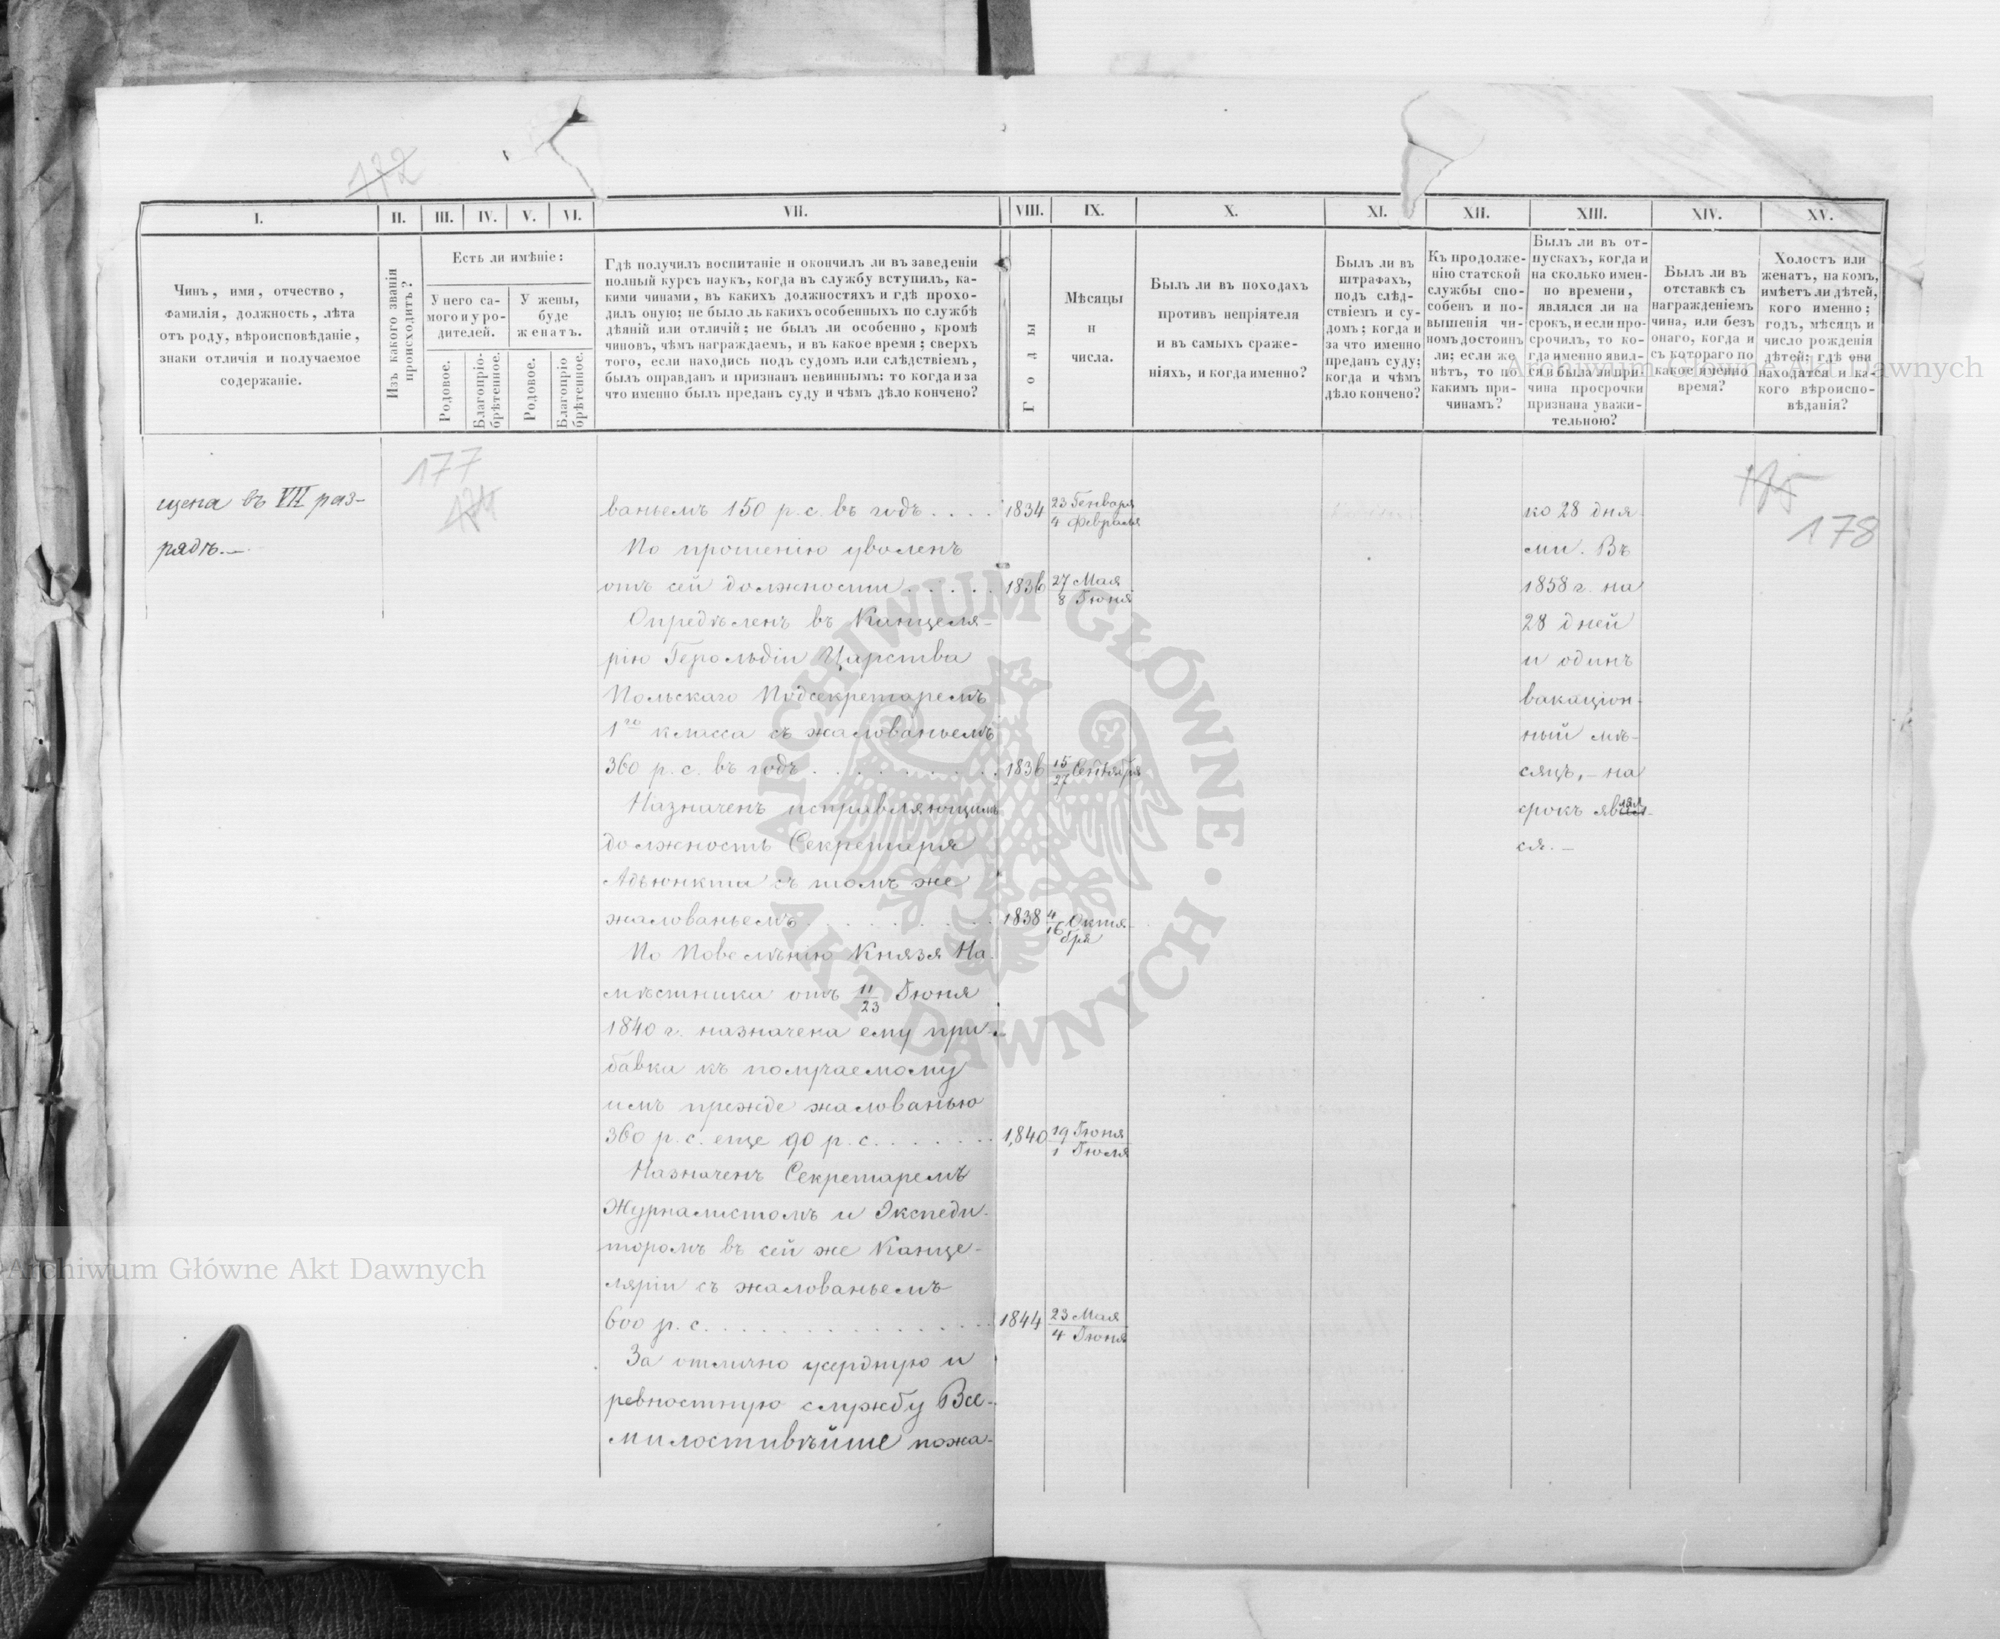 172
I.
II.
III.
IV.
V.
VI.
VII.
VIII.
IX.
X.
XI.
XII.
XIII.
XIV.
XV.
Чинъ, имя, отчество,
фамилія, должность, лѣта
отъ роду, вѣроисповѣданіе,
знаки отличія и получаемое
содержаніе.
Изъ какого званія
происходитъ?
Есть ли имѣніе:
У него са-
мого и у ро-
дителей.
У жены,
буде
женатъ.
Родовое.
Благопріо-
брѣтенное.
Родовое.
Благопріо
брѣтенное.
Гдѣ получилъ воспитаніе и окончилъ ли въ заведеніи
полный курсъ наукъ, когда въ службу вступилъ, ка-
кими чинами, въ какихъ должностяхъ и гдѣ прохо-
дилъ оную; не было ль какихъ особенныхъ по службѣ
дѣяній или отличій; не былъ ли особенно, кромѣ
чиновъ, чѣмъ награждаемъ, и въ какое время; сверхъ
того, если находись подъ судомъ или слѣдствіемъ,
былъ оправданъ и признанъ невиннымъ: то когда и за
что именно былъ преданъ суду и чѣмъ дѣло кончено?
Годы
Мѣсяцы
и
числа.
Былъ ли въ походахъ
противъ непріятеля
и въ самыхъ сраже-
ніяхъ, и когда именно?
Былъ ли въ
штрафахъ,
подъ слѣд-
ствіемъ и су-
домъ; когда и
за что именно
преданъ суду;
когда и чѣмъ
дѣло кончено?
Къ продолже-
нію статской
службы спо-
собенъ и по-
вышенія чи-
номъ достоинъ
ли; если же
нѣтъ, то по
какимъ при-
чинамъ?
Былъ ли въ от-
пускахъ, когда и
на сколько имен-
но времени,
являлся ли на
срокъ, и если про-
срочилъ, то ко-
гда именно явил-
ся и была ли при
чина просрочки
признана уважи-
тельною?
Былъ ли въ
отставкѣ съ
награжденіемъ
чина, или безъ
онаго, когда и
съ котораго по
какое именно
время?
Холостъ или
женатъ, на комъ,
имѣетъ ли дѣтей,
кого именно;
годъ, мѣсяцъ и
число рожденія
дѣтей; гдѣ они
находятся и ка-
кого вѣроиспо-
вѣданія?
177
174
175
178
щена въ VII раз-
рядъ.—
ваньемъ 150 р. с. въ годъ . . . .
По прошенію уволенъ
отъ сей должности . . . . .
Опредѣленъ въ Канцеля-
рію Герольдіи Царства
Польскаго Подсекретаремъ
1го класса съ жалованьемъ
360 р. с. въ годъ . . . . . . . . .
Назначенъ исправляющимъ
должность Секретаря
Адъюнкта съ томъ же
жалованьемъ . . . . . . . . .
По Повелѣнію Князя На-
мѣстника отъ 11/23 Іюня
1840 г. назначена ему при-
бавка къ получаемому
имъ прежде жалованью
360 р. с. еще 90 р. с. . . . . . .
Назначенъ Секретаремъ
Журналистомъ и Экспеди-
торомъ въ сей же Канце-
ляріи съ жалованьемъ
600 р. с. . . . . . . . . . . . . .
За отлично усердную и
ревностную службу Все-
милостивѣйше пожа-
1834 23 Генваря
4 Февраля
1836 27 Мая
8 Іюня
1836 15/27 Сентября
1838 4/16 Октя-
бря
1840 19 Іюня
1 Іюля
1844 23 Мая
4 Іюня
ко 28 дня-
ми. Въ
1858 г. на
28 дней
и одинъ
вакаціон-
ный мѣ-
сяцъ, – на
срокъ явил-
ся. –
ARCHIWUM GŁÓWNE · AKT DAWNYCH ·
Archiwum Główne Akt Dawnych
Archiwum Główne Akt Dawnych